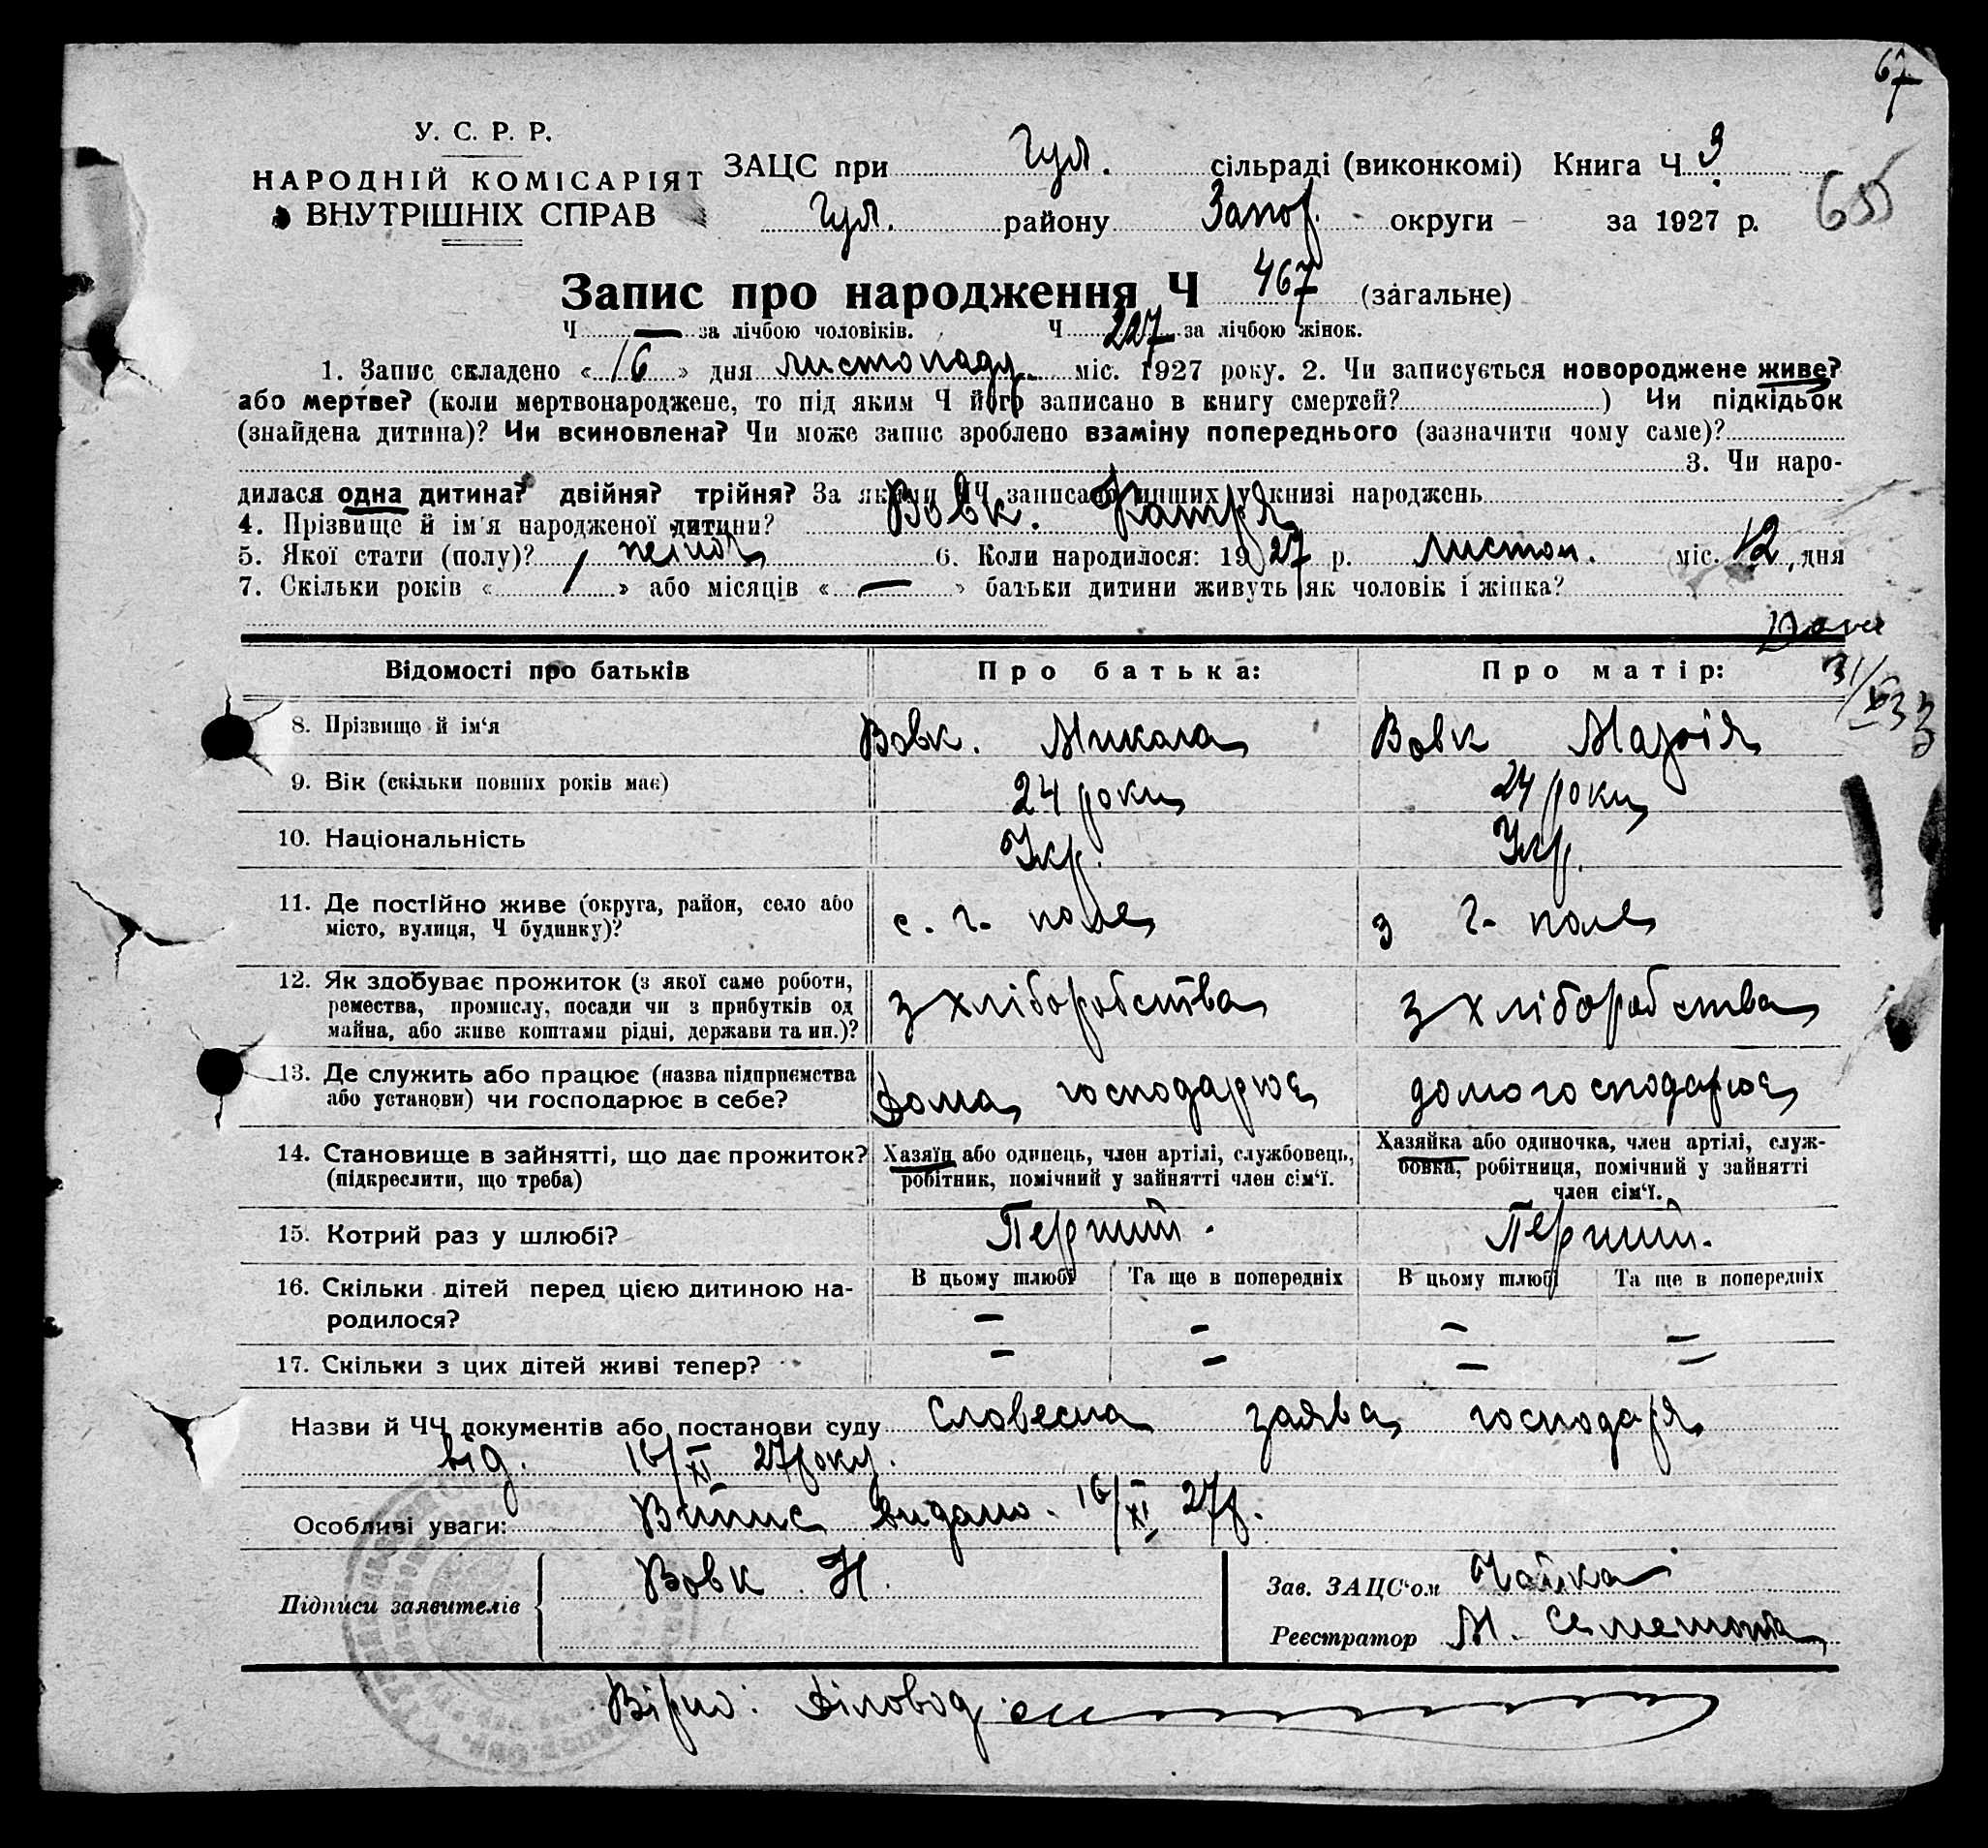 67
У. С. Р. Р.
НАРОДНІЙ КОМІСАРІЯТ
ВНУТРІШНІХ СПРАВ
ЗАЦС при Гул. сільраді (виконкомі) Книга Ч 3
655
Гул. району Запор. округи за 1927 р.
Запис про народження Ч 467 (загальне)
Ч — за лічбою чоловіків. Ч 227 за лічбою жінок.
1. Запис складено « 16 » дня листопаду міс. 1927 року. 2. Чи записується новороджене живе?
або мертве? (коли мертвонароджене, то під яким Ч його записано в книгу смертей? ) Чи підкідьок
(знайдена дитина)? Чи всиновлена? Чи може запис зроблено взаміну попереднього (зазначити чому саме)?
3. Чи наро-
дилася одна дитина? двійня? трійня? За якими ЧЧ записано инших у книзі народжень
4. Прізвище й ім'я народженої дитини? Вовк. Катря
5. Якої стати (полу)? жіноч 6. Коли народилося: 1927 р. листоп. міс. 12 дня
7. Скільки років « 1 » або місяців « — » батьки дитини живуть як чоловік і жінка?
31/XII 33
Відомості про батьків Про батька: Про матір:
8. Прізвище й ім‘я Вовк. Микола Вовк Марія
9. Вік (скільки повних років має) 24 роки 24 роки
10. Національність Укр. Укр.
11. Де постійно живе (округа, район, село або
місто, вулиця, Ч будинку)? с. г. поле з г. поле
12. Як здобуває прожиток (з якої саме роботи,
ремества, промислу, посади чи з прибутків од
майна, або живе коштами рідні, держави та ин.)? з хліборобства з хліборобства
13. Де служить або працює (назва підприємства
або установи) чи господарює в себе? Дома господарює домогосподарює
14. Становище в зайнятті, що дає прожиток?
(підкреслити, що треба)
Хазяїн або одинець, член артілі, службовець,
робітник, помічний у зайнятті член сім‘ї.
Хазяйка або одиночка, член артілі, служ-
бовка, робітниця, помічний у зайнятті
член сім‘ї.
15. Котрий раз у шлюбі? Перший. Перший.
16. Скільки дітей перед цією дитиною на-
родилося?
В цьому шлюбі Та ще в попередніх В цьому шлюбі Та ще в попередніх
— — — —
17. Скільки з цих дітей живі тепер? — — — —
Назви й ЧЧ документів або постанови суду словесна заява господаря
від. 16/XI 27 року.
Особливі уваги: Витис видано. 16/XI 27 р.
Підписи заявителів Вовк Н.
Зав. ЗАЦС‘ом Чайка
Реєстратор М.
Вірно: Діловод